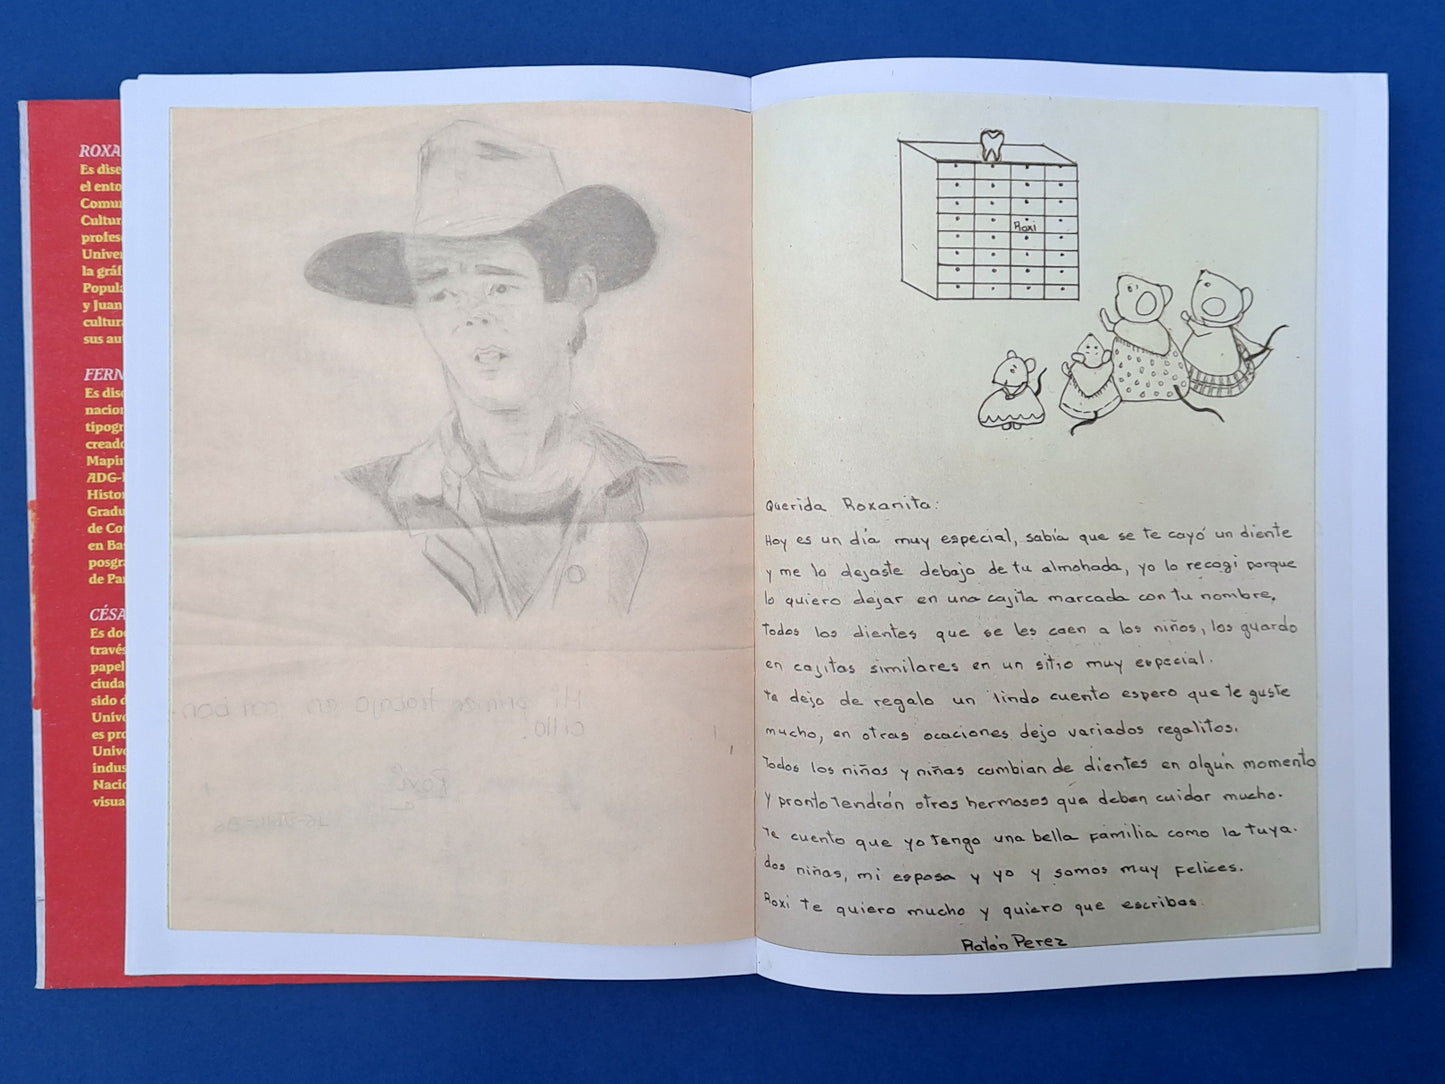 ROXA
Es dise
el ento
Comu
Cultur
profes
Univer
la gráf
Popula
y Juan
cultura
sus au
FERN
Es dise
nacion
tipogr
creado
Mapin
ADG-
Histor
Gradu
de Co
en Bas
posgra
de Pa
CÉSA
Es do
través
papel
ciuda
sido d
Univ
es pro
Unive
indus
Nacio
visua
Mi primer trabajo en carbon-
cillo.
Roxi
Roxi
Querida Roxanita:
Hoy es un día muy especial, sabía que se te cayó un diente
y me lo dejaste debajo de tu almohada, yo lo recogi porque
lo quiero dejar en una cajita marcada con tu nombre.
Todos los dientes que se les caen a los niños, los guardo
en cajitas similares en un sitio muy especial.
Te dejo de regalo un lindo cuento espero que te guste
mucho, en otras ocaciones dejo variados regalitos.
Todos los niños y niñas cambian de dientes en algún momento
y pronto tendrán otros hermosos que deben cuidar mucho.
Te cuento que yo tengo una bella familia como la tuya.
dos niñas, mi esposa y yo y somos muy felices.
Roxi te quiero mucho y quiero que escribas.
Ratón Perez